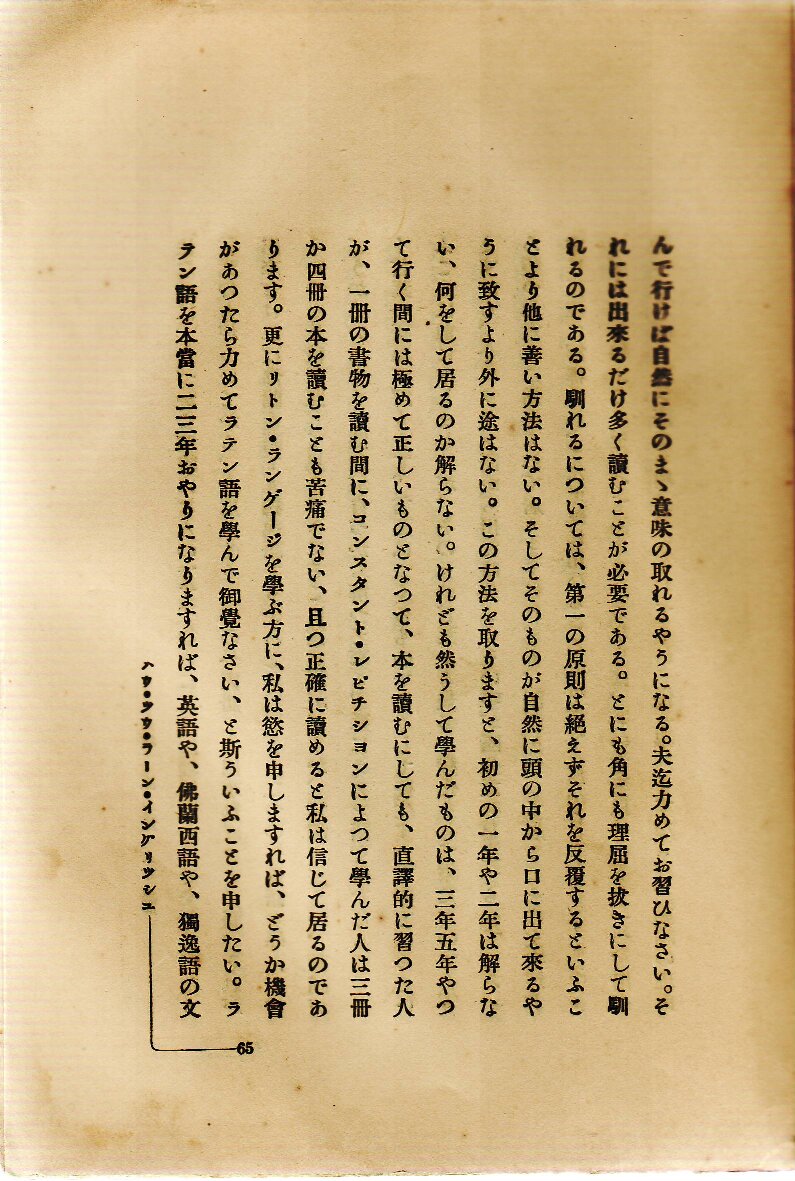 んで行けば自然にそのまゝ意味の取れるやうになる。夫迄力めてお習ひなさい。そ
れには出來るだけ多く讀むことが必要である。とにも角にも理屈を拔きにして馴
れるのである。馴れるについては、第一の原則は絶えずそれを反覆するといふこ
とより他に善い方法はない。そしてそのものが自然に頭の中から口に出て來るや
うに致すより外に途はない。この方法を取りますと、初めの一年や二年は解らな
い、何をして居るのか解らない。けれども然うして學んだものは、三年五年やつ
て行く間には極めて正しいものとなつて、本を讀むにしても、直譯的に習つた人
が、一冊の書物を讀む間に、コンスタント・レピチションによつて學んだ人は三冊
か四冊の本を讀むことも苦痛でない、且つ正確に讀めると私は信じて居るのであ
ります。更にリトン・ランゲージを學ぶ方に、私は慾を申しますれば、どうか機會
があつたら力めてラテン語を學んで御覺なさい、と斯ういふことを申したい。ラ
テン語を本當に二三年おやりになりますれば、英語や、佛蘭西語や、獨逸語の文
ハウ・ツウ・ラーン・イングリツシユ
65